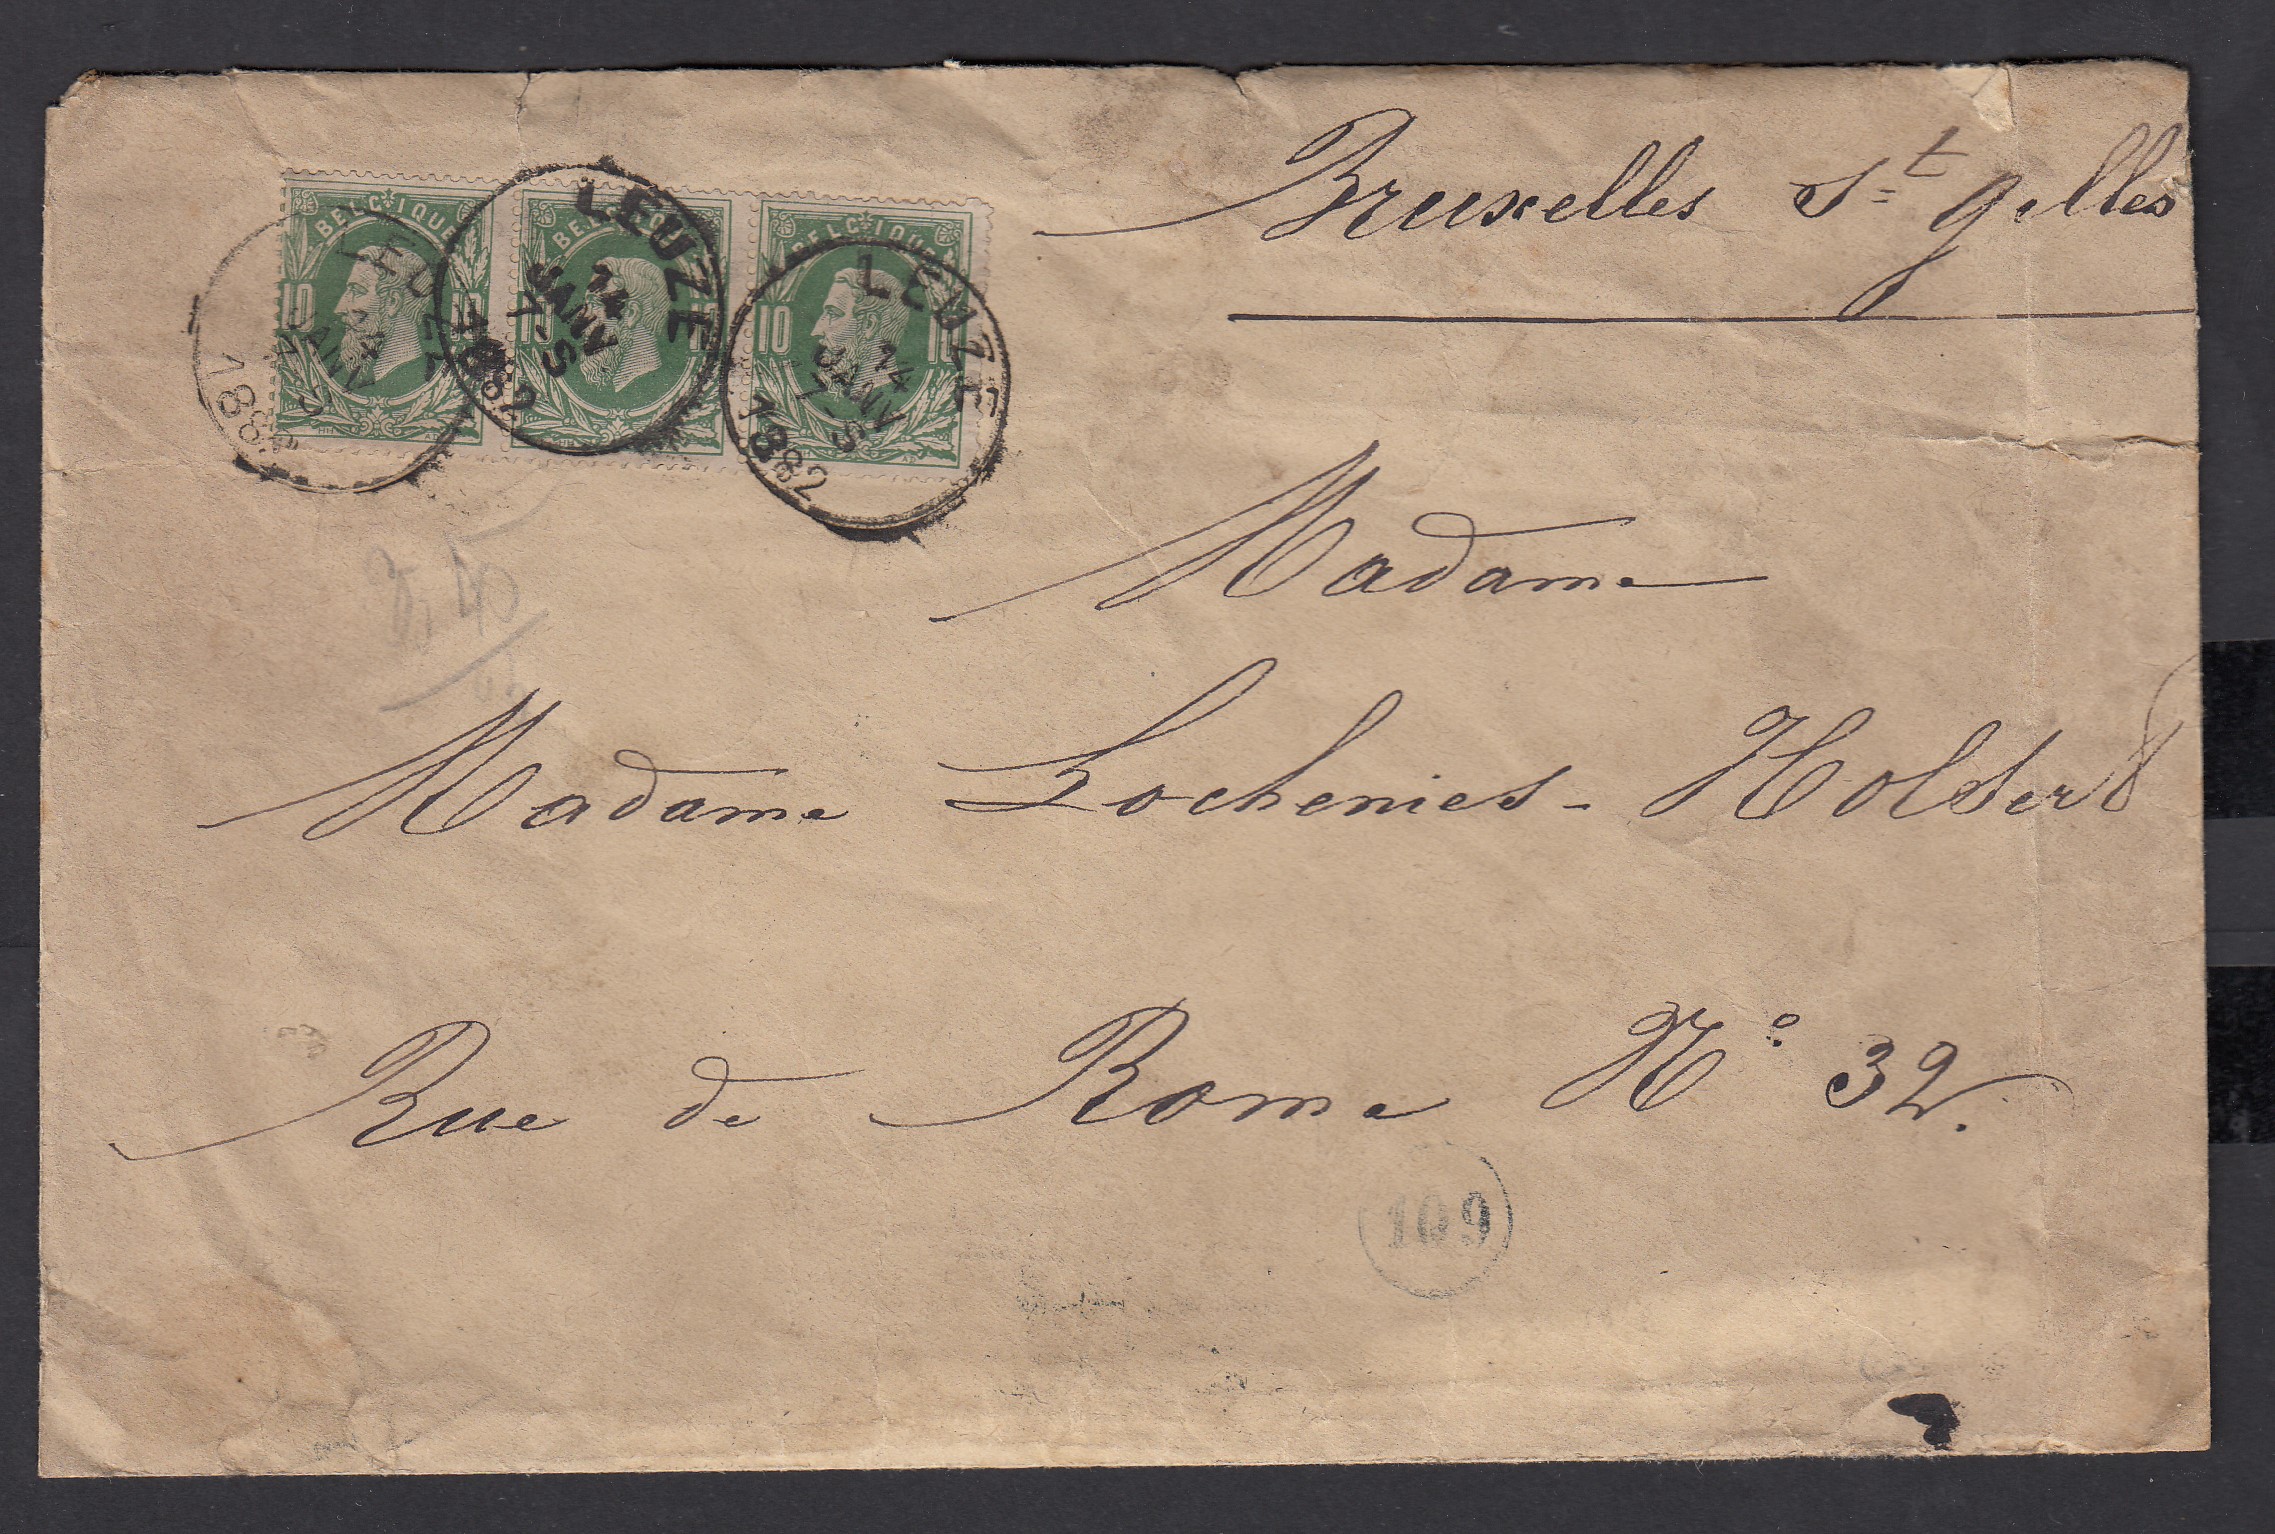 Bruxelles St Gilles
BELGIQUE
10 10
LEUZE
14
JANV
7-S
1882
BELGIQUE
LEUZE
14
JANV
7-S
1882
BELGIQUE
10 10
LEUZE
14
JANV
7-S
1882
Madame
Madame Lochenies-
Rue de Rome No 32.
109